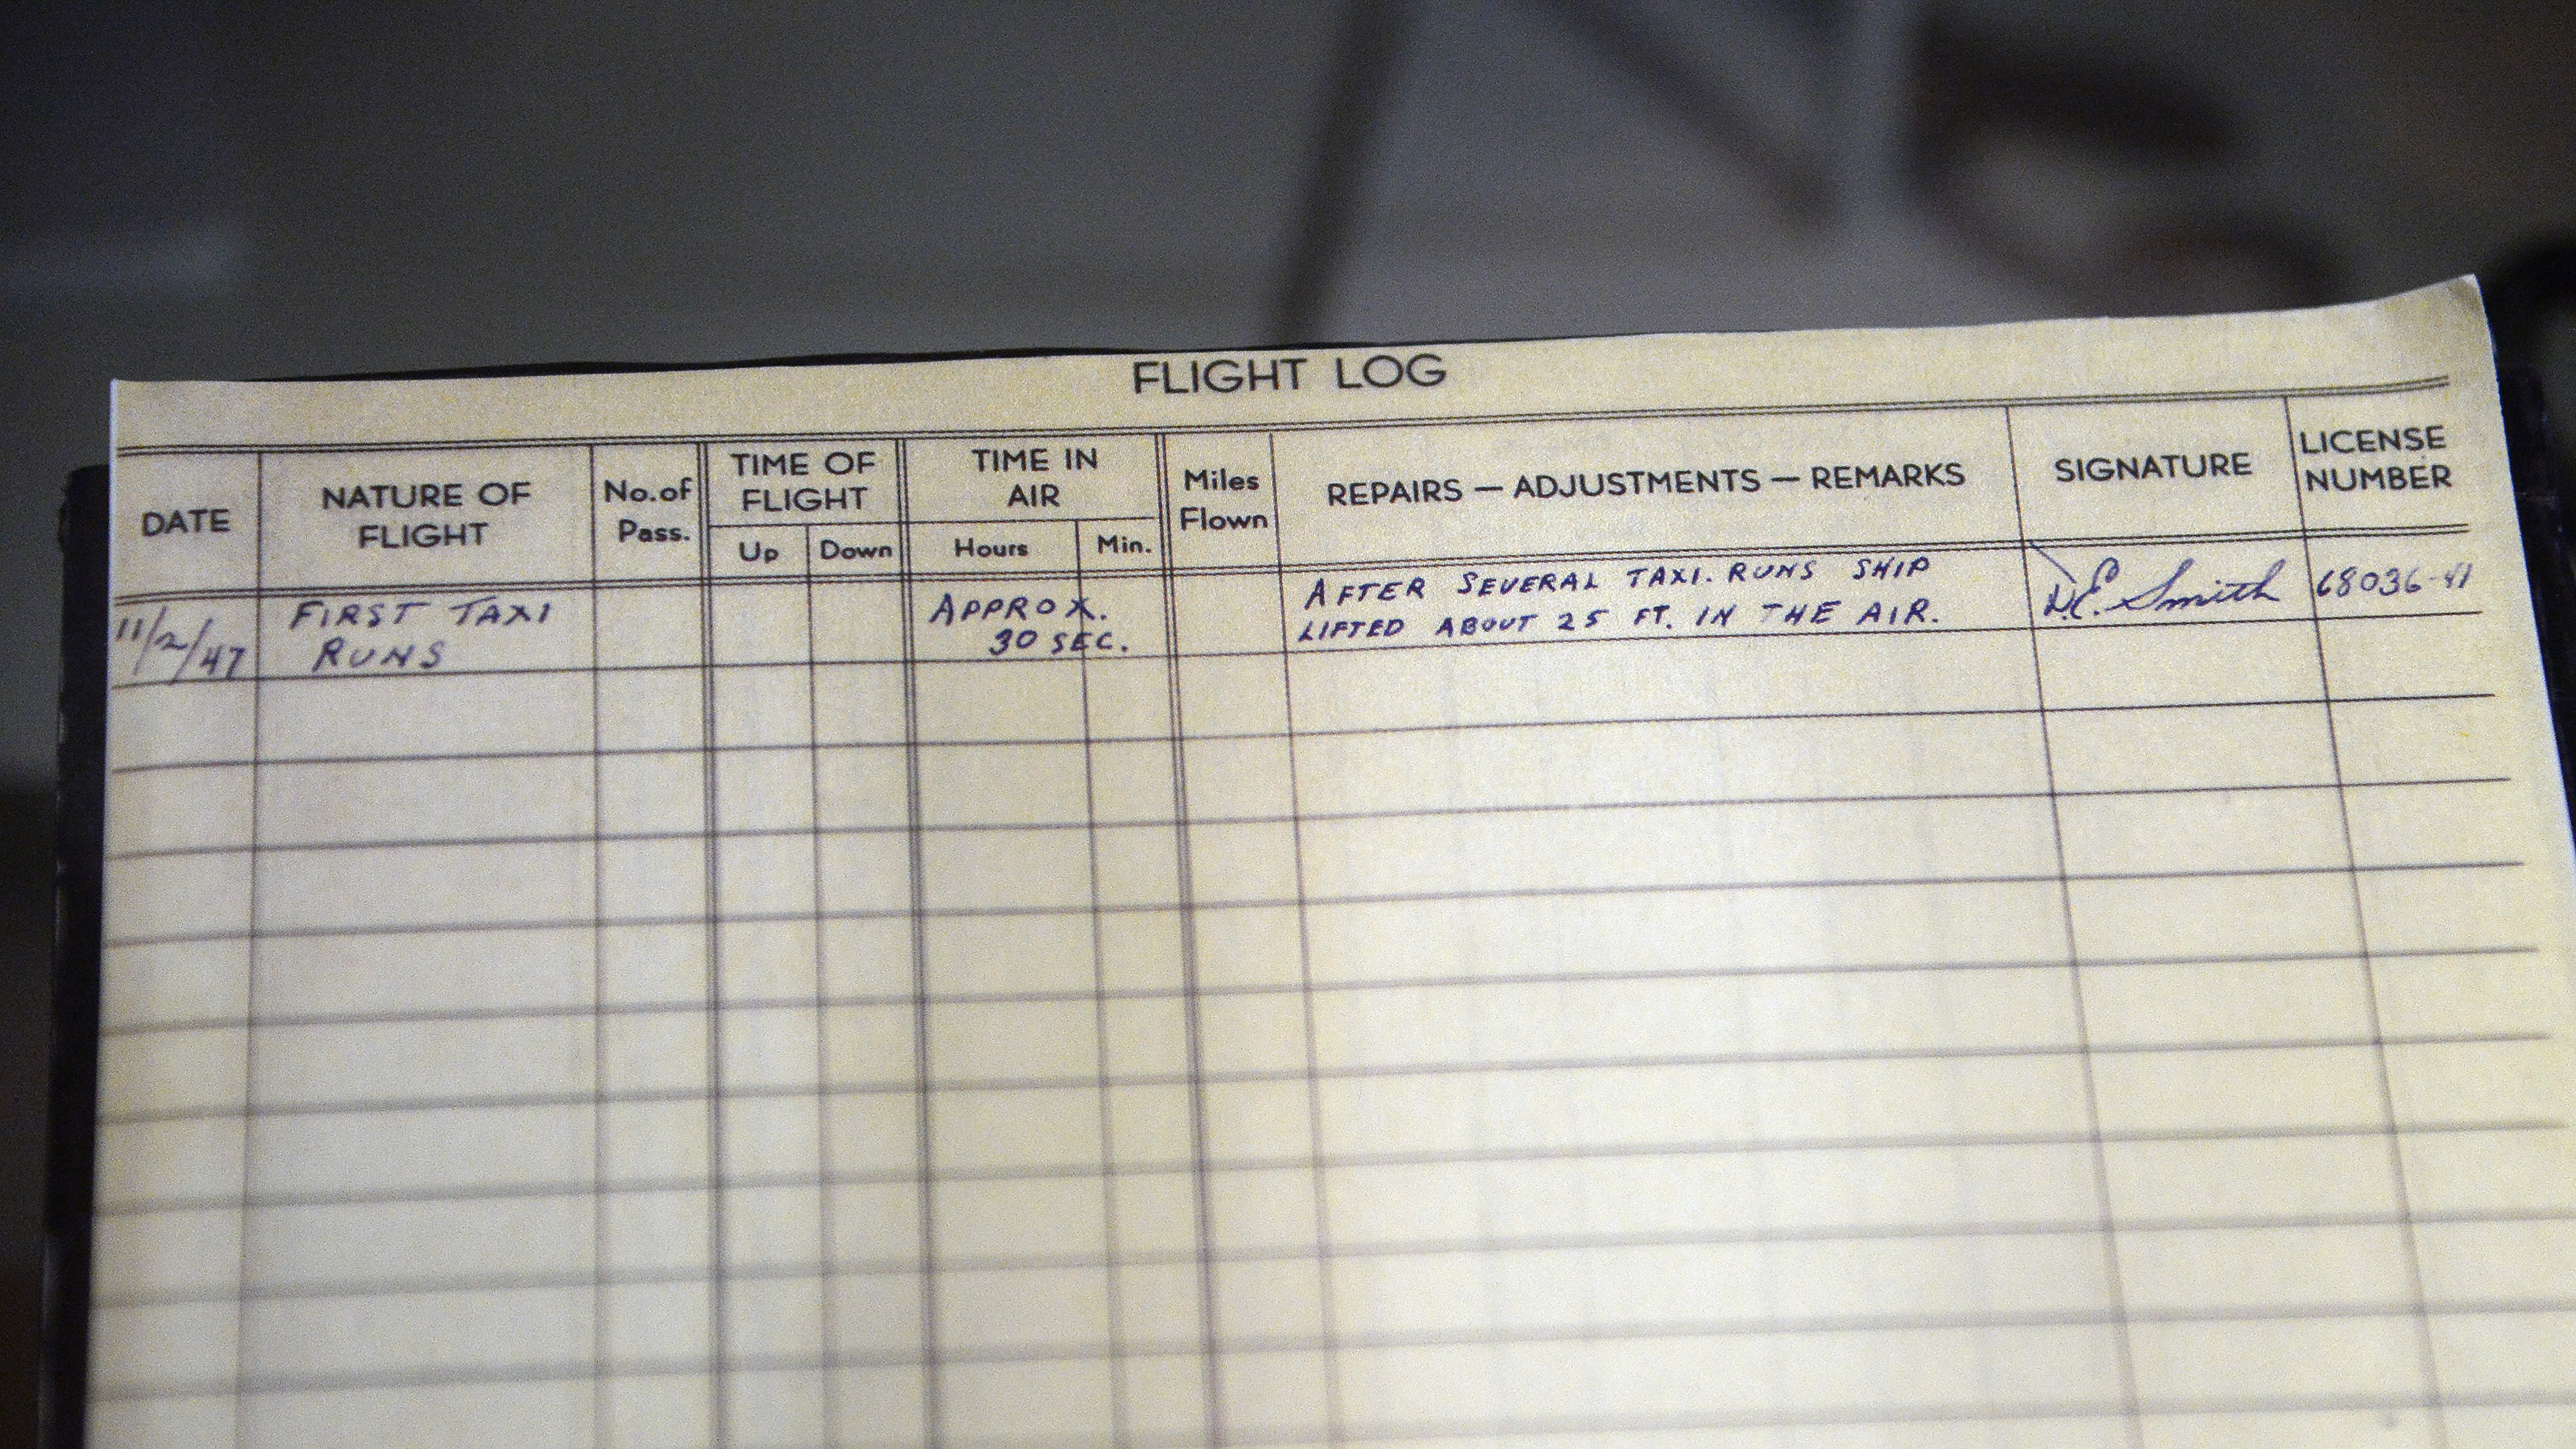 FLIGHT LOG
DATE
NATURE OF
FLIGHT
No. of
Pass.
TIME OF
FLIGHT
Up
Down
TIME IN
AIR
Hours
Min.
Miles
Flown
REPAIRS — ADJUSTMENTS — REMARKS
SIGNATURE
LICENSE
NUMBER
11/2/47
FIRST TAXI
RUNS
APPROX.
30 SEC.
AFTER SEVERAL TAXI. RUNS SHIP
LIFTED ABOUT 25 FT. IN THE AIR.
D.E. Smith
68036-41